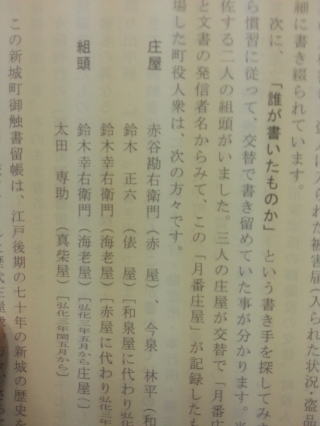 られた被害届（入られた状況・盗品
細に書き綴られています。
次に、「誰が書いたものか」という書き手を探してみま
ら慣習に従って、交替で書き留めていた事が分かります。
佐する二人の組頭がいました。三人の庄屋が交替で「月番
と文書の発信者名からみて、この「月番庄屋」が記録したも
場した町役人衆は、次の方々です。
庄屋　赤谷勘右衛門（赤　屋）、今泉　林平（和
鈴木　正六　（俵　屋）［和泉屋に代わり弘化
鈴木幸右衛門（海老屋）［赤屋に代わり弘化三年
組頭　鈴木幸右衛門（海老屋）［弘化三年五月から庄屋へ］
太田　専助　（真柴屋）［弘化三年閏五月から］
この新城町御触書留帳は、江戸後期の七十年の新城の歴史を